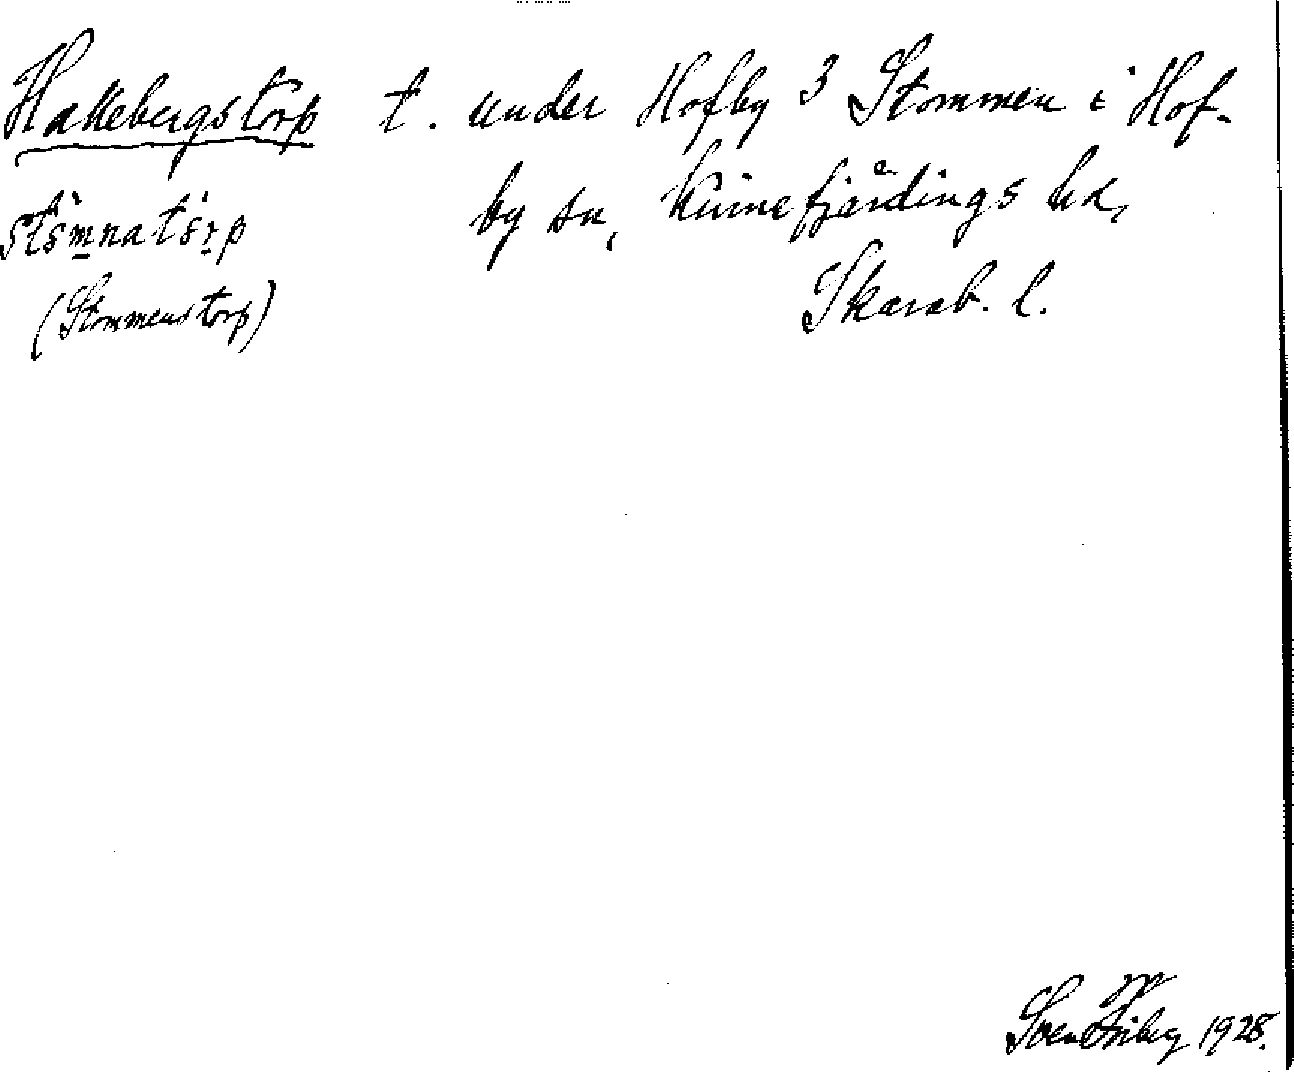 Hallebergstorp t. under Hofby 3 Stommen i Hof-
by sn, Kinnefjärdings hd,
Skarab. l.
(Stommenstorp)
Sven Friberg 1928.